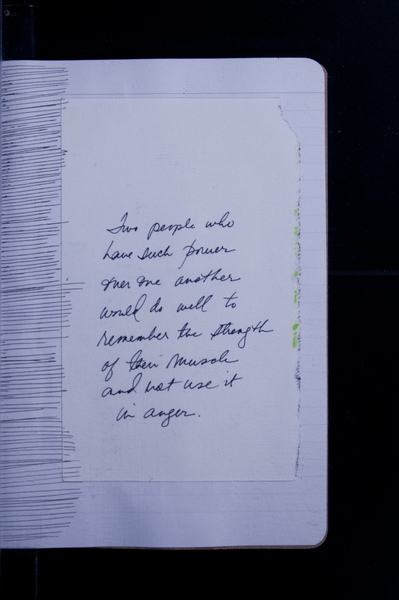 Two people who
have such power
over one another
would do well to
remember the strength
of their muscle
and not use it
in anger.